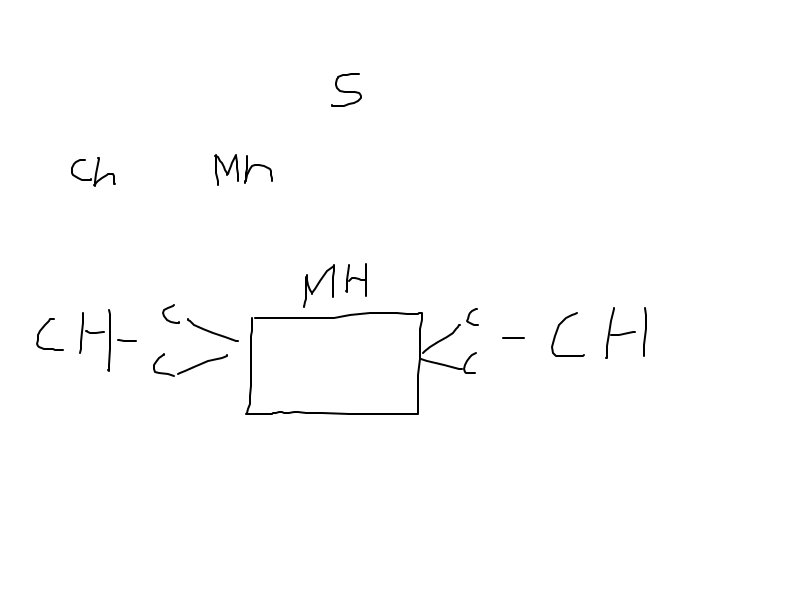 S
Ch Mh
MH
CH- C C - CH
C C